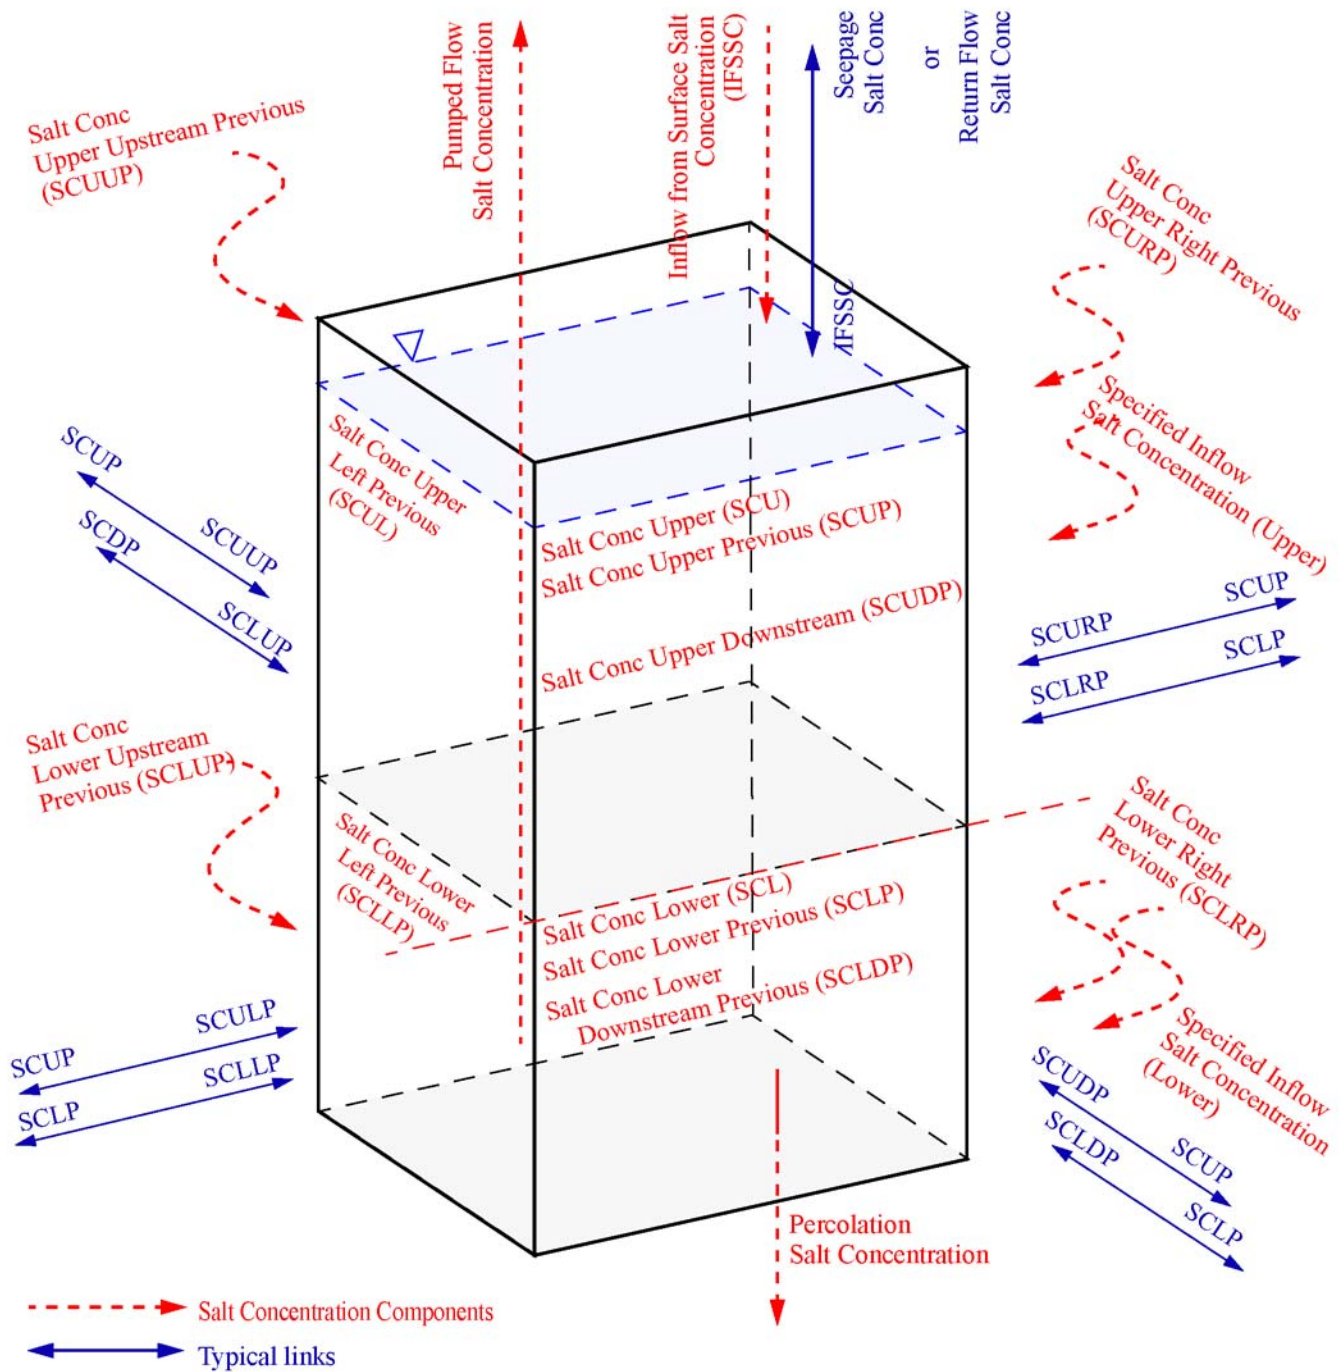 Pumped Flow
Salt Concentration
Inflow from Surface Salt
Concentration
(IFSSC)
Seepage
Salt Conc
or
Return Flow
Salt Conc
IFSSC
Salt Conc
Upper Upstream Previous
(SCUUP)
Salt Conc
Upper Right Previous
(SCURP)
Specified Inflow
Salt Concentration (Upper)
Salt Conc Upper
Left Previous
(SCUL)
Salt Conc Upper (SCU)
Salt Conc Upper Previous (SCUP)
Salt Conc Upper Downstream (SCUDP)
SCUP
SCUUP
SCDP
SCLUP
SCURP
SCUP
SCLRP
SCLP
Salt Conc
Lower Upstream
Previous (SCLUP)
Salt Conc Lower
Left Previous
(SCLLP)
Salt Conc Lower (SCL)
Salt Conc Lower Previous (SCLP)
Salt Conc Lower
Downstream Previous (SCLDP)
Salt Conc
Lower Right
Previous (SCLRP)
Specified Inflow
Salt Concentration
(Lower)
SCUP
SCULP
SCLP
SCLLP
SCUDP
SCUP
SCLDP
SCLP
Percolation
Salt Concentration
Salt Concentration Components
Typical links